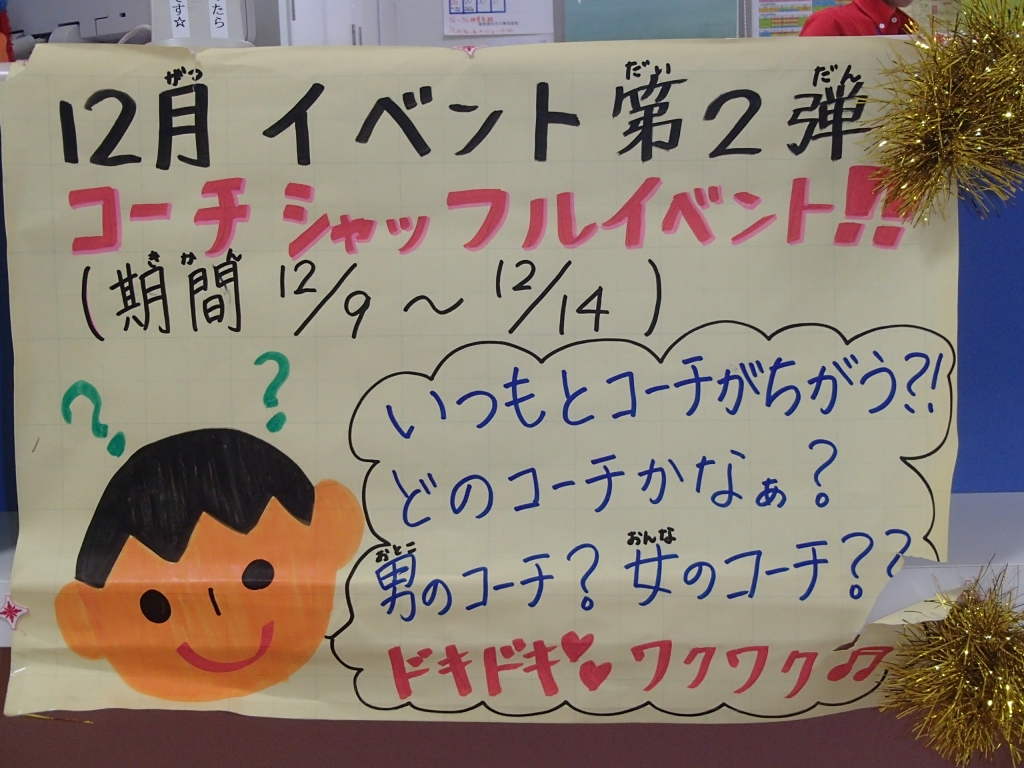 たら
です☆
12月 イベント 第2弾
がつ だい だん
コーチシャッフルイベント!!
(期間 12/9 ～ 12/14)
きかん
いつもとコーチがちがう?!
どのコーチかなぁ?
男のコーチ? 女のコーチ??
おとこ おんな
ドキドキ♥♥ ワクワク♫